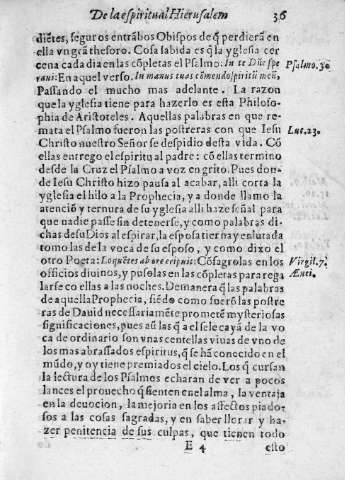 De la espiritual Hierusalem 36
diẽtes, seguros entrãbos Obispos de q̃ perderã en
ella vn grã thesoro. Cosa sabida es q̃ la yglesia cer
cena cada dia en las cõpletas el Psalmo. In te Dñe spe
raui: En aquel verso. In manus tuas cõmendo spiritũ meũ,
Psalmo. 30
Passando el mucho mas adelante. La razon
que la yglesia tiene para hazerlo es esta Philoso-
phia de Aristoteles. Aquellas palabras en que re-
mata el Psalmo fueron las postreras con que Iesu
Christo nuestro Señor se despidio desta vida. Cõ
Luc. 23.
ellas entrego el espiritu al padre: cõ ellas termino
desde la Cruz el Psalmo a voz en grito. Pues don-
de Iesu Christo hizo pausa al acabar, alli corta la
yglesia el hilo a la Prophecia, y a donde llamo la
atenciõ y ternura de su yglesia alli haze señal para
que nadie passe sin detenerse, y como palabras di-
chas de su Dios al espirar, la esposa tierna y enlutada
tomo las de la voca de su esposo, y como dixo el
otro Poeta: Loquẽtes ab ore eripuit: Cõsagrolas en los
Virgil. 7.
officios diuinos, y pusolas en las cõpletas para rega
Ænei.
larse co ellas a las noches. De manera q̃ las palabras
de aquella Prophecia, siẽdo como fuerõ las postre
ras de Dauid necessariamẽte prometẽ mysteriosas
significaciones, pues aũ las q̃ a el se le cayã de la vo
ca de ordinario son vnas centellas viuas de vno de
los mas abrassados espiritus, q̃ se hã conocido en el
mũdo, y oy tiene premiados el cielo. Los q̃ cursan
la lectura de los Psalmos echaran de ver a pocos
lances el prouecho q̃ sienten en el alma, la ventaja
en la deuocion, la mejoria en los affectos piado-
sos a las cosas sagradas, y en saber llorar y ha-
zer penitencia de sus culpas, que tienen todo
E 4 esto